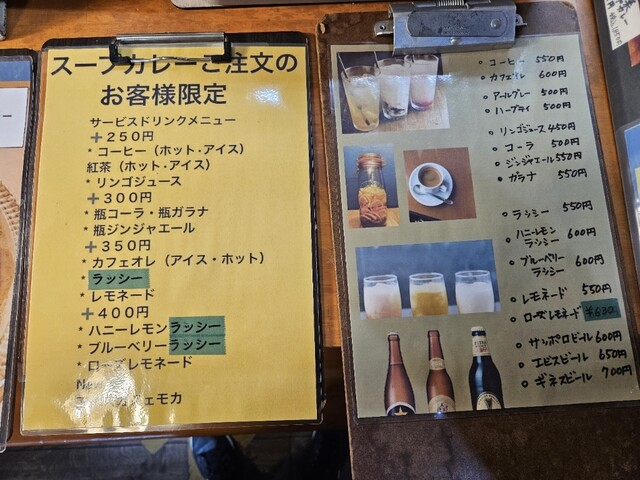 スープカレーご注文の
お客様限定
サービスドリンクメニュー
+250円
* コーヒー（ホット・アイス）
紅茶（ホット・アイス）
* リンゴジュース
+300円
* 瓶コーラ・瓶ガラナ
* 瓶ジンジャエール
+350円
* カフェオレ（アイス・ホット）
* ラッシー
* レモネード
+400円
* ハニーレモンラッシー
* ブルーベリーラッシー
* ローズレモネード
New
カフェモカ
コーヒー 550円
カフェオレ 600円
アールグレー 500円
ハーブティ 500円
リンゴジュース 450円
コーラ 500円
ジンジャエール 550円
ガラナ 550円
ラッシー 550円
ハニーレモン
ラッシー 600円
ブルーベリー
ラッシー 600円
レモネード 550円
ローズレモネード ¥630
サッポロビール 600円
エビスビール 650円
ギネスビール 700円